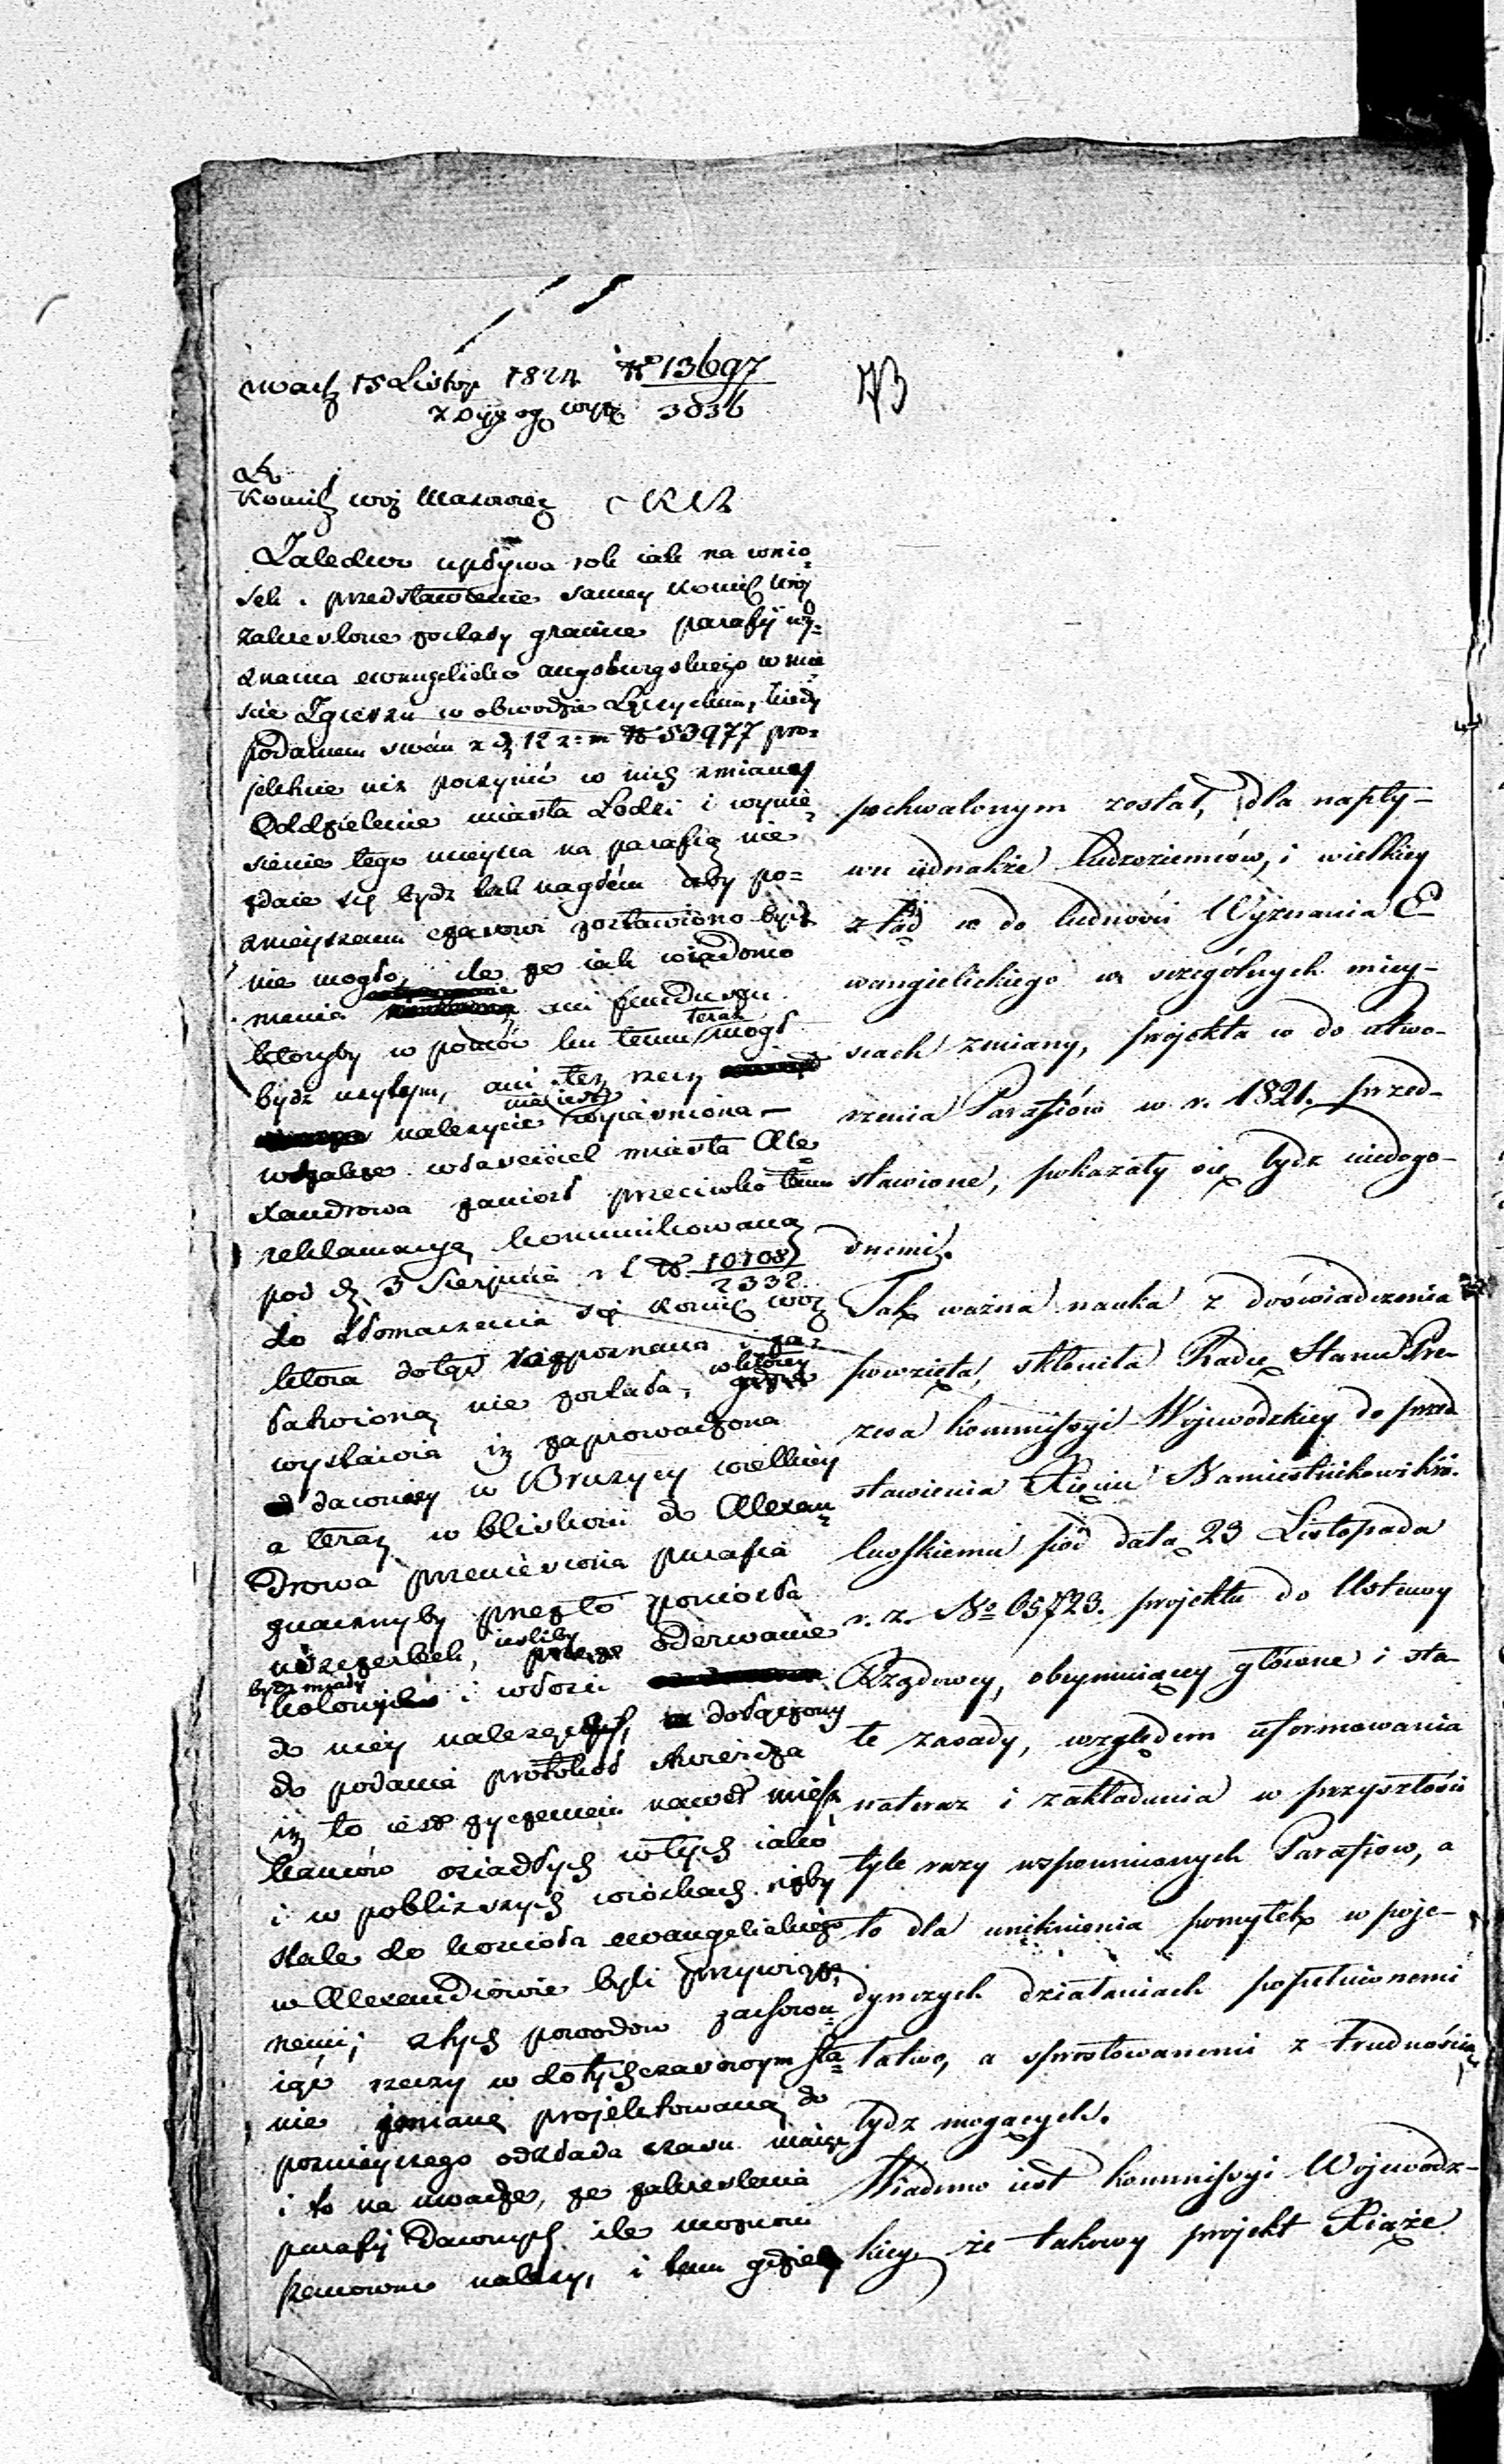 15 Listop 1824 No 13697
3036
73
Do
Komis woj Mazowiec
Zaledwo upływa rok iak na wnio-
sek i przedstawienie samey Komis woj
zakreslone zostały granice parafij wy-
znania ewangielicko augsburgskiego w mie
scie Zgierzu w obwodzie Łęczyckim, kiedy
podaniem swém z d 12 No 53977 pro-
jektuie uż poczynić w nich zmianę
Oddzielenie miasta Łodzi i wynie-
sienie tego mieysca na parafią nie
zdaie się bydź tak nagłém aby po-
znieyszemu czasowi zostawiono bydź
nie mogło, ile ze iak wiadomo
niema ani funduszu
któryby w pomoc ku temu teraz mógł
bydź użytym, ani też rzecz
należycie wyiasniona
wszakze własciciel miasta Ale-
xandrowa zaniosł przeciwko temu
reklamacyę kommunikowaną
pod d 3 Sierpnia r b No 10108
2332
do tłomaczenia się Komis woj
która dotąd rozpoznana i za-
łatwioną nie została, w ktorey
wystawia iż zaprowadzona
dawniey w Bruzycy wielkiey
a teraz w bliskosci do Alexan-
drowa przeniesiona parafia
znacznyby przez to poniosła
uszczerbek, iesliby oderwanie
bydź miały
kolonij i włosci
do niey należących, dołączony
do podania protokół stwierdza
iż to iest zyczeniem nawet miesz
kanców osiadłych w tych iako
i w pobliższych wioskach izby
stale do koscioła ewangelickiego
w Alexandrowie byli przywiąza-
nemi; z tych powodów zachowu-
iąc rzeczy w dotychczasowym sta-
nie zmianę projektowaną do
poznieyszego odkłada czasu maiąc
i to na uwadze, ze zakreslenia
parafij dawnych ile moznosci
szanowne należy, i tam gdzie
pochwalonym został, dla napły-
wu iednakże cudzoziemców, i wielkiey
ztąd co do ludności Wyznania E-
wangielickiego w szczególnych miey-
scach zmiany, projekta co do utwo-
rzenia Parafiów w r. 1821. przed-
stawione, pokazały się bydz niedogo-
dnemi.
Tak ważna nauka z doświadczenia
powzięta, skłoniła Radę Stanu Pre-
zesa Kommissyi Wojewódzkiey do przed
stawienia Xięciu Namiestnikowi Kró-
lewskiemu pod datą 23 Listopada
r. z. No 65723. projektu do Ustawy
Rządowey, obeymuiącey główne i sta-
łe zasady, względem uformowania
nateraz i zakładania w przyszłości
tyle razy wspomnionych Parafiow, a
to dla uniknienia pomyłek w poje-
dynczych działaniach popełnionemi
łatwo, a sprostowanemi z trudnością
bydz mogących.
Wiadomo iest Kommissyi Wojewódz-
kiey że takowy projekt Xiąże